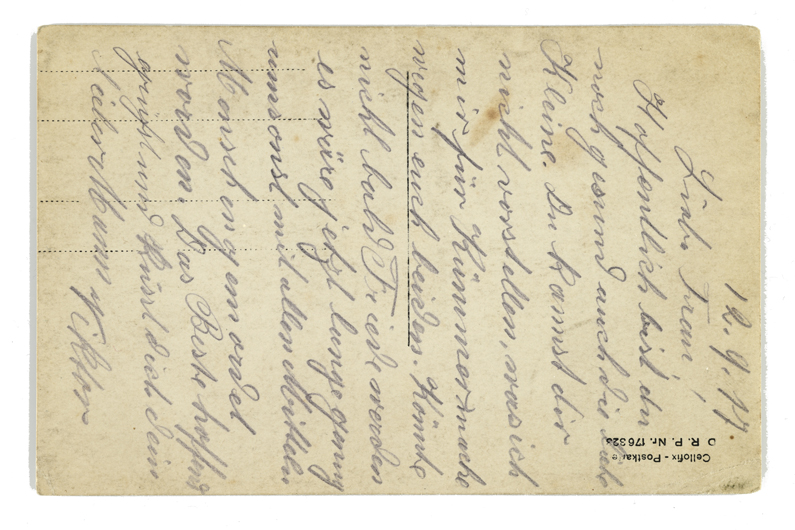 12. 9. 17.
Liebe Frau!
Hoffentlich bist du
noch gesund auch die liebe
Kleine. Du kannst dir
nicht vorstellen, was ich
mir für Kümmer mache
wegen euch beiden. Könnte
nicht bald Friede werden
es wäre jetzt lange genug
umsonst mit allen Mitteln
Menschen gemordet
worden. Das Beste hoffend
grüßt und küsst dich dein
lieber Mann Viktor
Cellofix - Postkarte
D. R. P. Nr. 176323